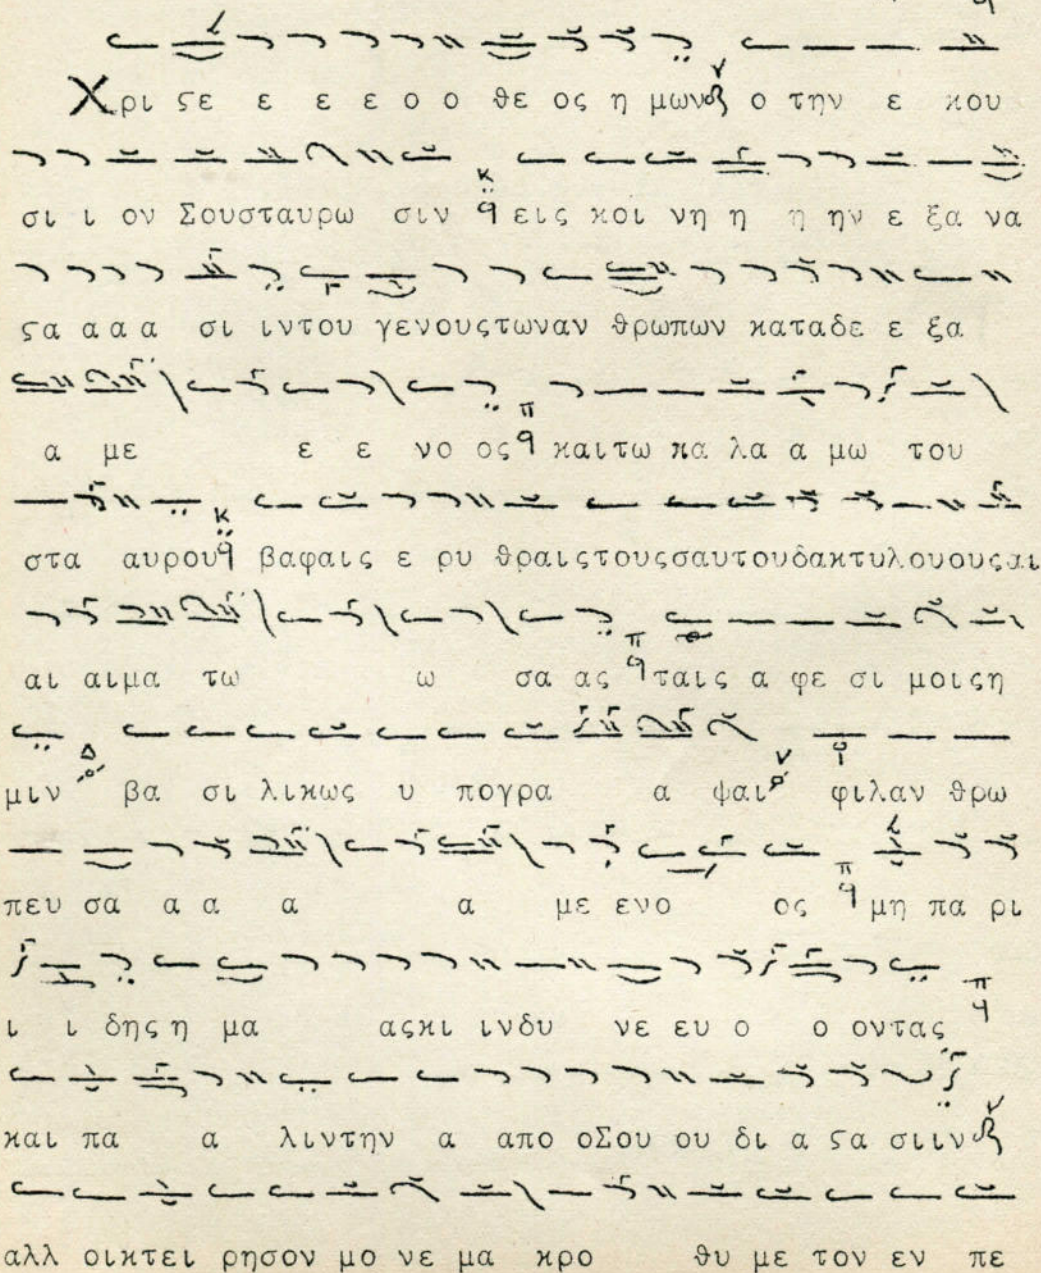 Χρι ϛε ε ε ε ο ο θε ος η μων ο την ε κου
σι ι ον Σουσταυρω σιν εις κοι νη η η ην ε ξα να
ϛα α α α σι ιντου γενουςτωναν θρωπων καταδε ε ξα
α με ε ε νο ος καιτω κα λα α μω του
στα αυρου βαφαις ε ρυ θραιςτουςσαυτουδακτυλουουςαι
αι αιμα τω ω σα ας ταις α φε σι μοιςη
μιν βα σι λικως υ πογρα α ψαι φιλαν θρω
πευ σα α α α α με ενο ος μη πα ρι
ι ι δης η μα αςκι ινδυ νε ευ ο ο οντας
και πα α λιντην α απο οΣου ου δι α ϛα σιιν
αλλ οικτει ρησον μο νε μα κρο θυ με τον εν πε